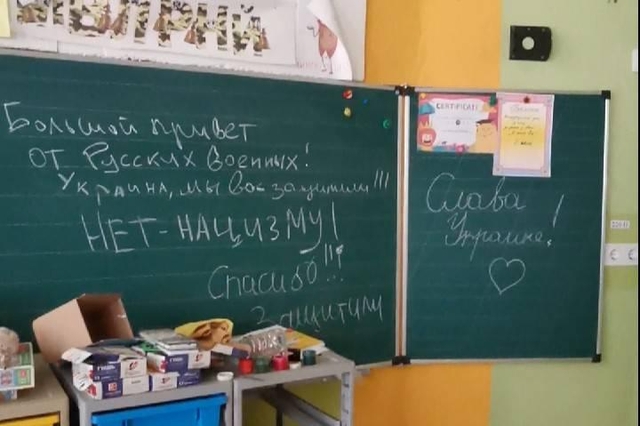 Большой привет
от Русских военных!
Украина, мы вас защитили!!!
НЕТ-НАЦИЗМУ!
Спасибо!!!
Защитили
CERTIFICATE
Слава
Украине!